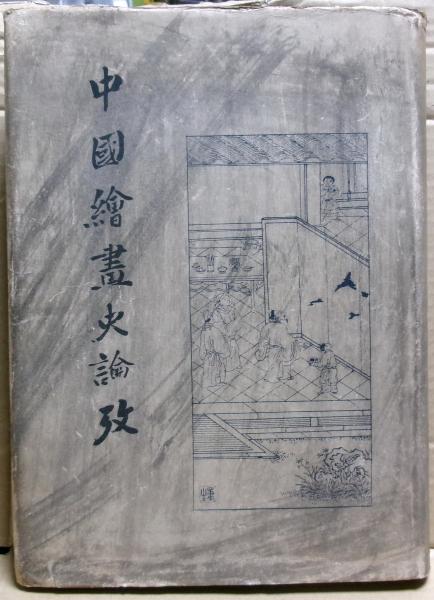 中國繪畫史論攷